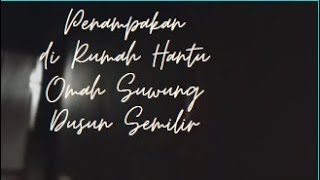 Penampakan
di Rumah Hantu
Omah Suwung
Dusun Semilir